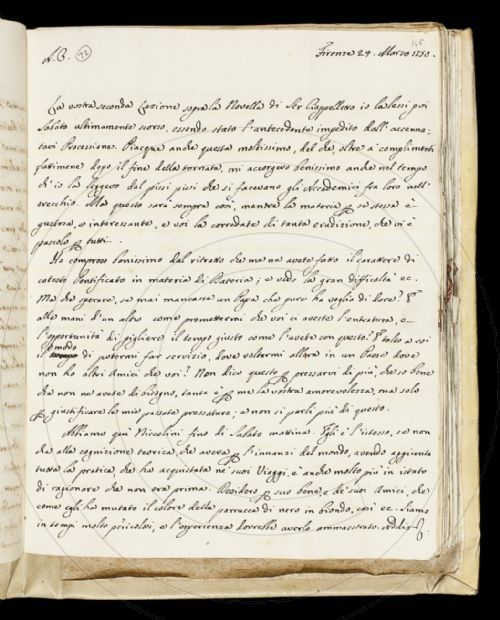 A. C. 72 Firenze 24. Marzo 1750. 145
La vostra seconda Lezione sopra la Novella di Ser Ciappelletto io la lessi poi
Sabato ultimamente scorso, essendo stato l'antecedente impedito dall' accenna-
tavi Processione. Piacque anche questa moltissimo, del che, oltre a' complimenti
fattimene dopo il fine della tornata, mi accorgevo benissimo anche nel tempo
ch' io la leggevo dal pissi pissi che si facevano gli Accademici fra loro nell'
orecchio. Ma questo sarà sempre così, mentre la materia per se stessa è
gustosa, e interessante, e voi la corredate di tanta erudizione, che vi è
pascolo per tutti.
Ho compreso benissimo dal ritratto che me ne avete fatto il carattere di
cotesto Pontificato in materia di ; e vedo la gran difficoltà ec.
Ma che sperare, se mai mancasse un Papa che puro ha voglia di dare? E
alle mani d'un altro come promettermi che voi ci aveste l'entratura, e
l'opportunità di pigliare il tempo giusto come l'avete con questo? E tolto a voi
il modo di potermi far servizio, dove voltarmi allora in un Paese dove
non ho altri Amici che voi? Non dico questo per pressarvi di più, che so bene
che non ne avete di bisogno, tanta è per me la vostra amorevolezza, ma solo
per giustificare le mie passate pressature; e non si parli più di questo.
Abbiamo quì Niccolini fino di Sabato mattina. Egli è l'istesso, se non
che alla cognizione teorica che aveva per l'innanzi del mondo, avendo aggiunta
tutta la pratica che ha acquistata ne' suoi Viaggi, è anche molto più in istato
di ragionare che non era prima. Desidero per suo bene, e de' suoi Amici, che
come egli ha mutato il colore della parrucca di nero in biondo, così ec. Siamo
in tempi molto pericolosi, e l'esperienza dovrebbe averlo ammaestrato. Addio